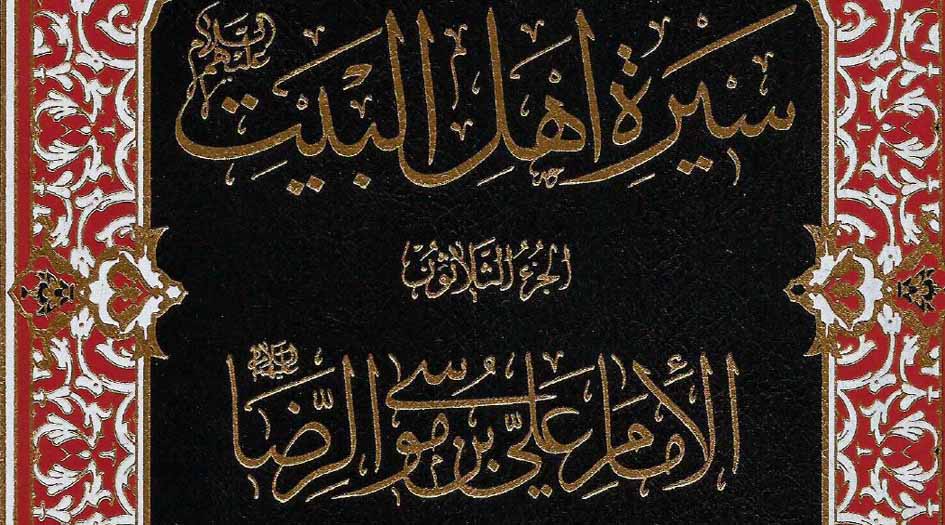 سيرة اهل البيت عليهم السلام
الجزء الثلاثون
الإمام علي بن موسى الرضا عليه السلام